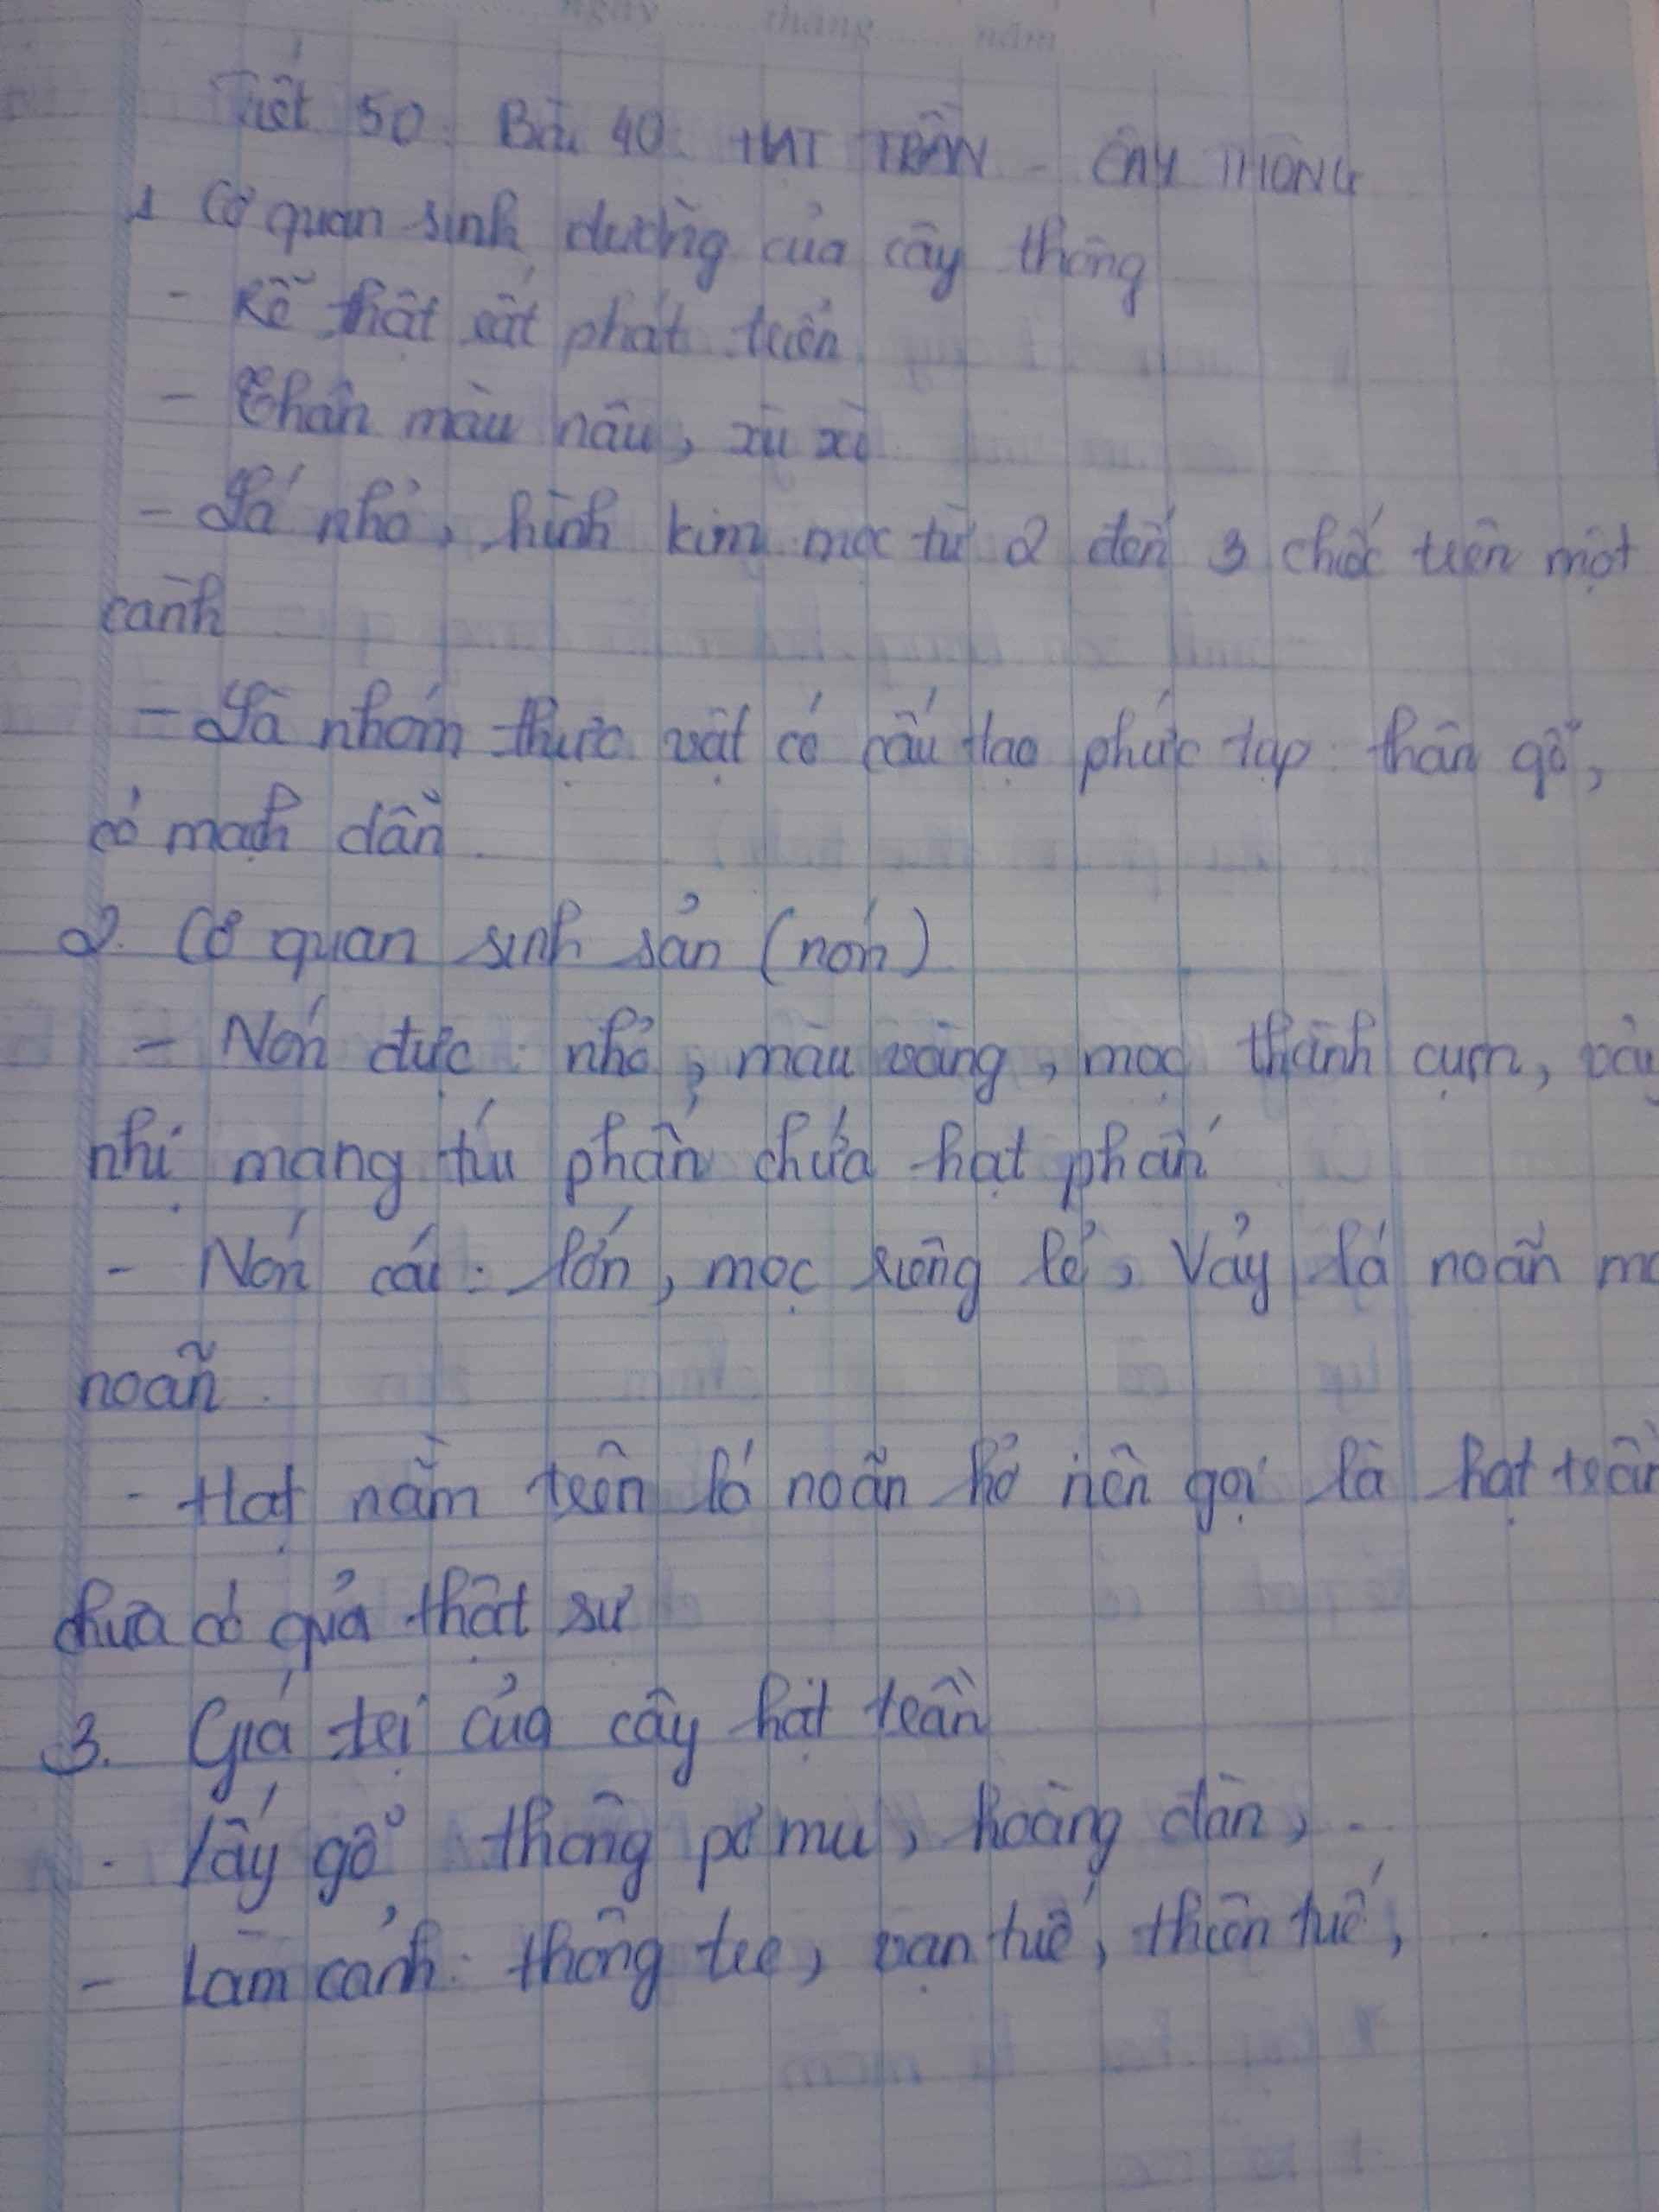 ngày ..... tháng ..... năm
Tiết 50: Bài 40: HẠT TRẦN - CÂY THÔNG
1 Cơ quan sinh dưỡng của cây thông
- Rễ thật rất phát triển
- Thân màu nâu, xù xì
- Lá nhỏ, hình kim mọc từ 2 đến 3 chiếc trên một
cành
- Là nhóm thực vật có cấu tạo phức tạp: thân gỗ,
có mạch dẫn
2. Cơ quan sinh sản (nón)
- Nón đực: nhỏ, màu vàng, mọc thành cụm, vảy
nhị mang túi phấn chứa hạt phấn
- Nón cái: lớn, mọc riêng lẻ, Vảy lá noãn
noãn.
- Hạt nằm trên lá noãn hở nên gọi là hạt trần
chưa có quả thật sự
3. Giá trị của cây hạt trần
- Lấy gỗ: thông pơ mu, hoàng đàn, ..
- Làm cảnh: thông tre, vạn tuế, thiên tuế, .